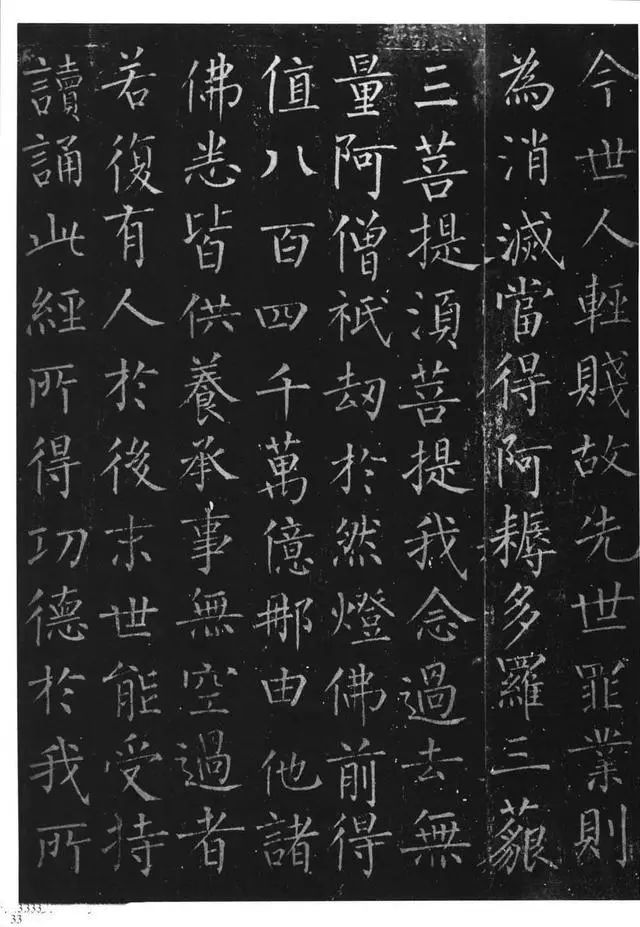 今世人輕賤故先世罪業則
為消滅當得阿耨多羅三藐
三菩提須菩提我念過去無
量阿僧祇劫於然燈佛前得
值八百四千萬億那由他諸
佛悉皆供養承事無空過者
若復有人於後末世能受持
讀誦此經所得功德於我所
3333
33